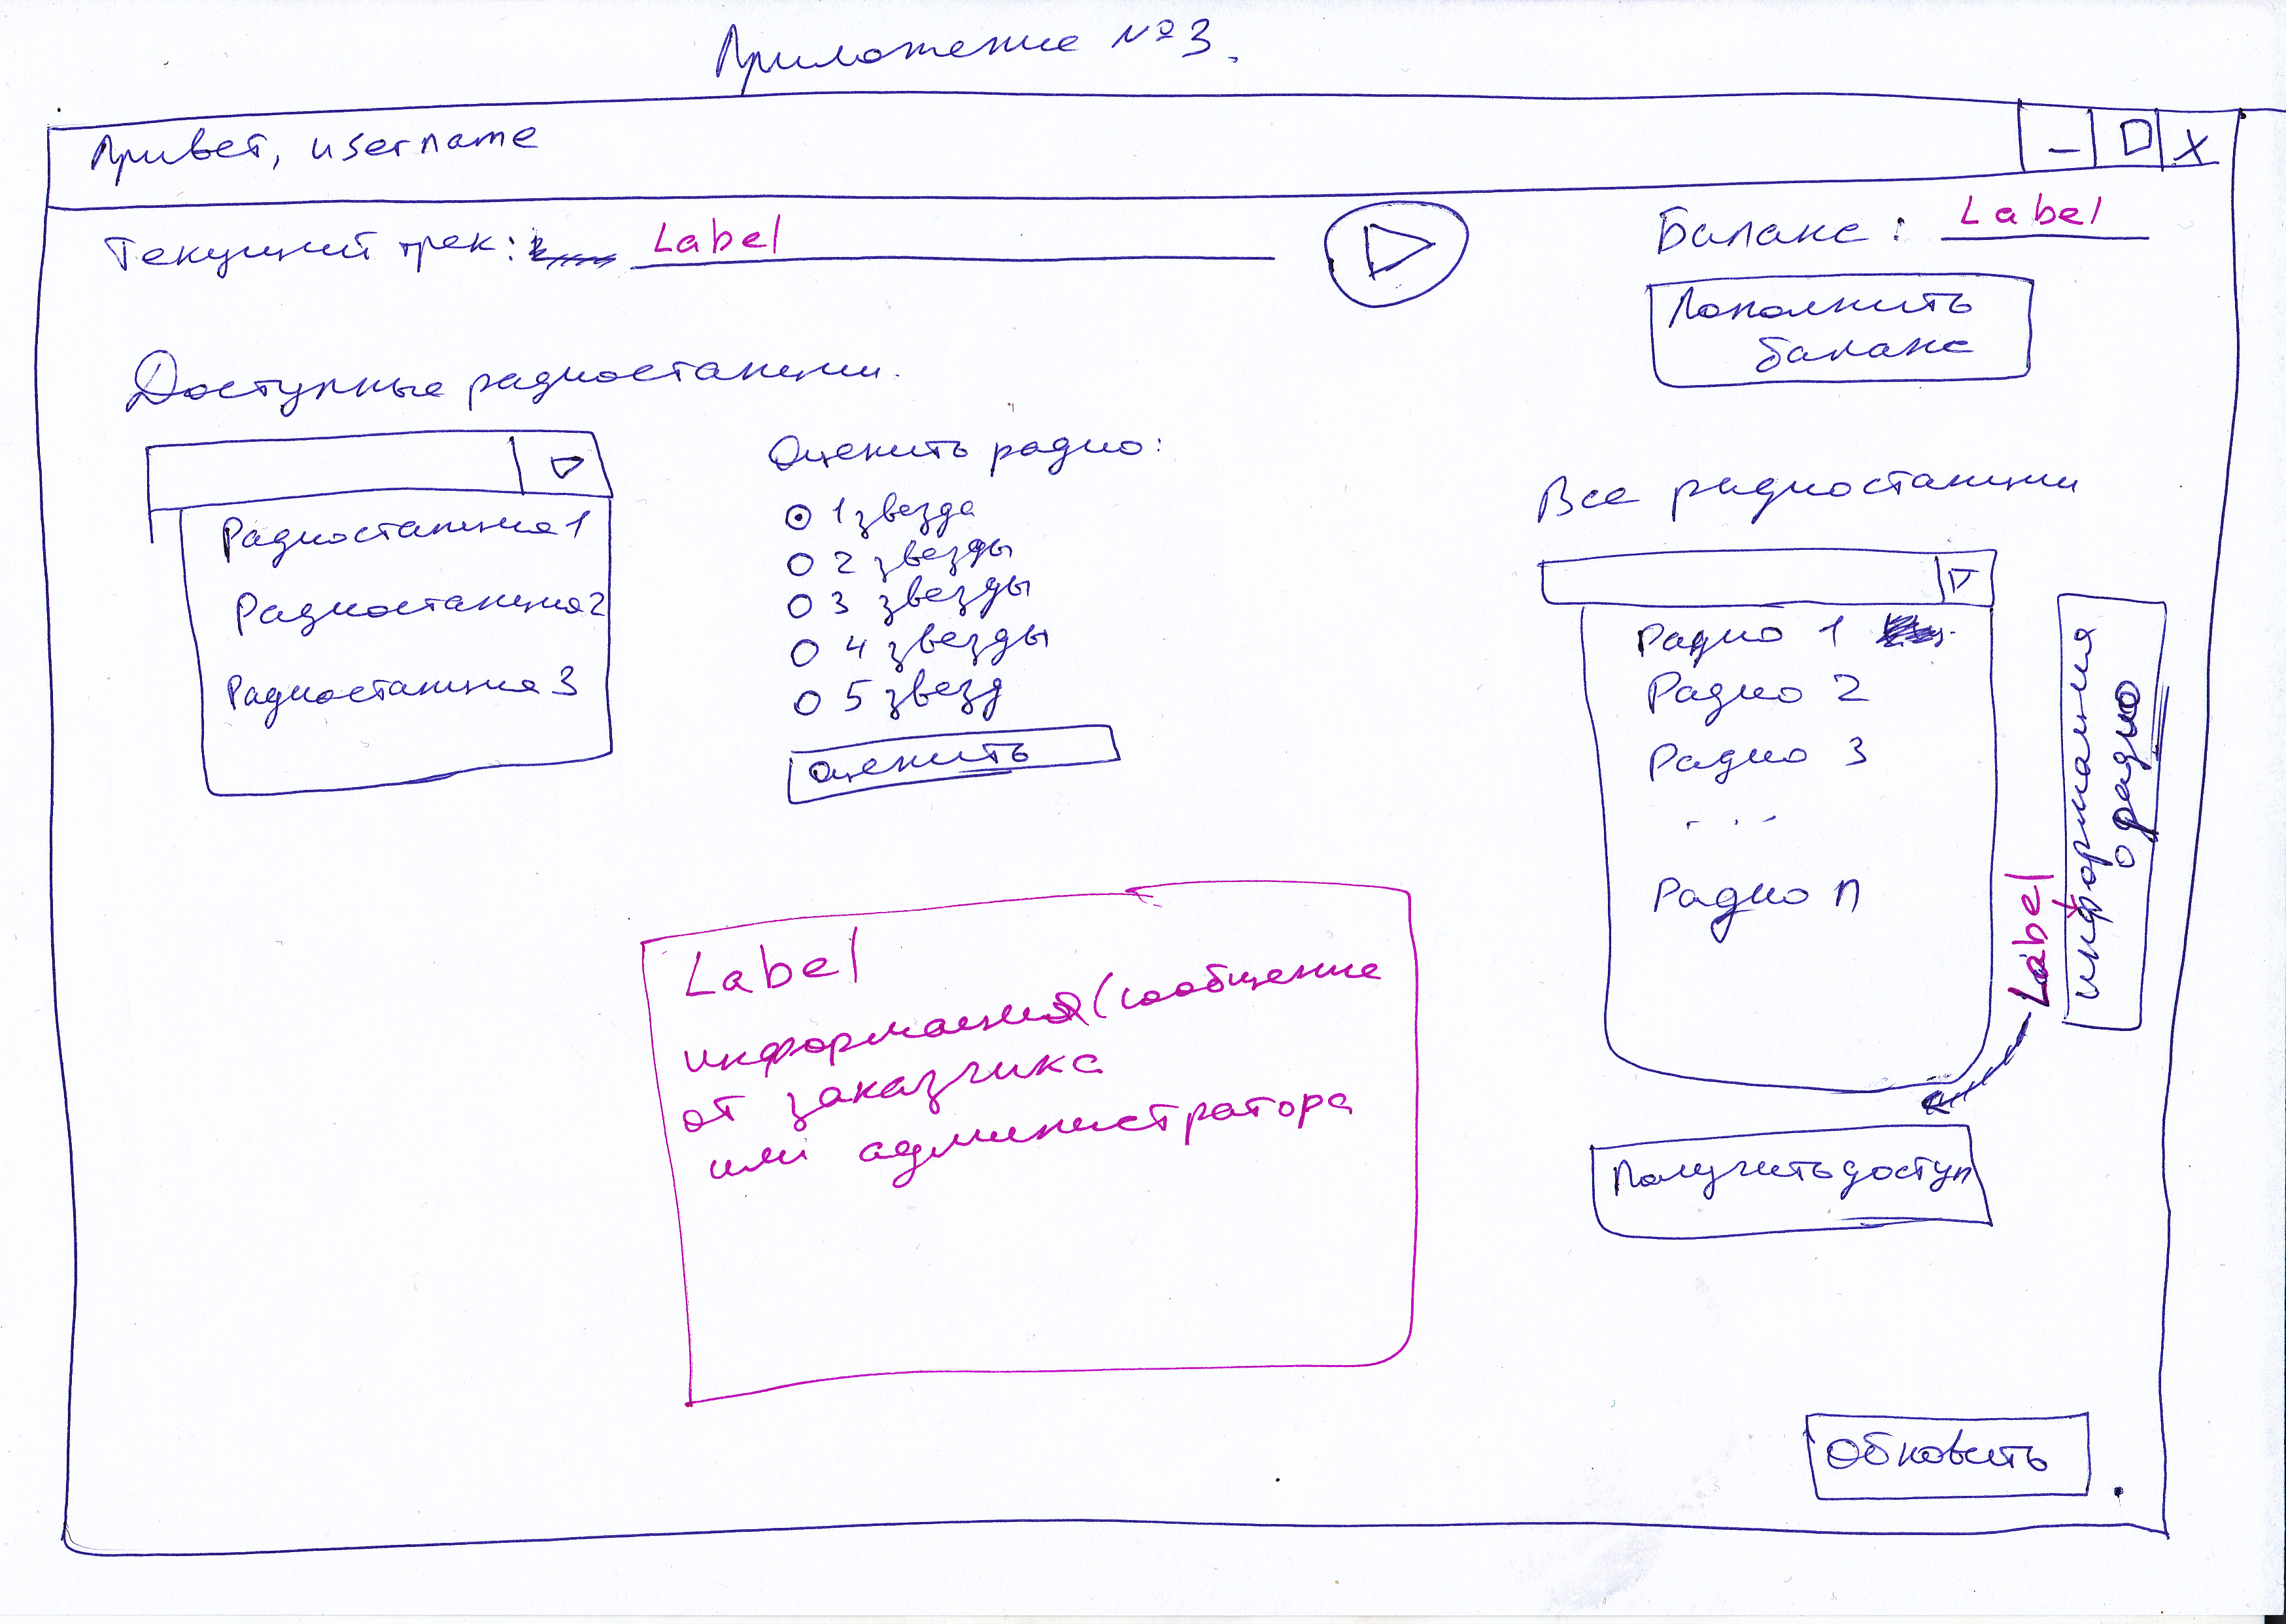 Приложение №3.
Привет, username
Текущий трек: Label
Баланс: Label
Пополнить
баланс
Доступные радиостанции.
Радиостанция 1
Радиостанция 2
Радиостанция 3
Оценить радио:
1 звезда
2 звезды
3 звезды
4 звезды
5 звезд
оценить
Все радиостанции
Радио 1
Радио 2
Радио 3
...
Радио n
информация
о радио
Label
Получить доступ
Label
информация (сообщение
от заказчика
или администратора
Обновить